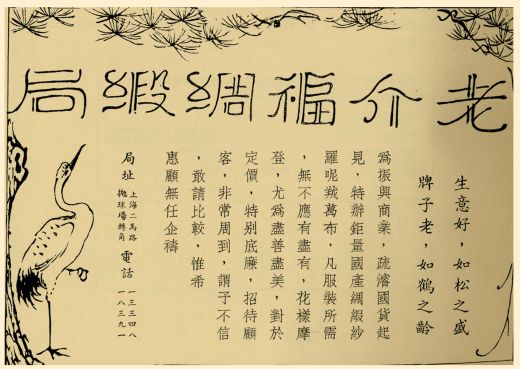 老介福綢緞局
生意好,如松之盛
牌子老,如鶴之齡
爲振興商業,疏濬國貨起
見,特辦鉅量國產綢緞紗
羅呢羢葛布,凡服裝所需
,無不應有盡有,花樣摩
登,尤爲盡善盡美,對於
定價,特别底廉,招待顧
客,非常周到,謂予不信
,敢請比較,惟希
惠顧無任企禱
局址
上海二馬路
拋球場轉角
電話
一三三四八
一八三九一